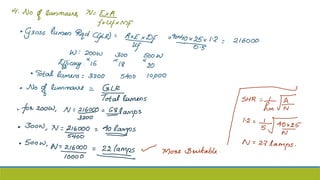 4. No of luminaire N = E×A
f×Uf×Mf
• Gross lumen Reqd (GLR) = A×E×Df / Uf = 40×25×1.2 / 0.5 = 216000
W: 200W 300 500W
Efficacy *16 *18 *20
• Total lumens: 3300 5400 10,000
• No of luminaire = GLR / Total lumens
• for 200W, N = 216000 / 3300 = 68 lamps
• 300W, N = 216000 / 5400 = 40 lamps
• 500W, N = 216000 / 10000 = 22 lamps ✓ More Suitable.
SHR = 1/Hm √A/N
1.2 = 1/5 √40×25/N
N = 27 lamps.